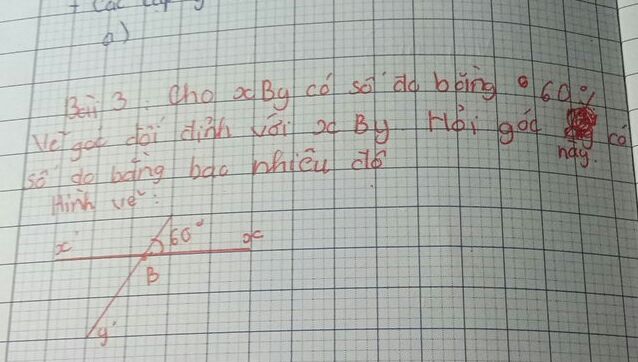 + Các cặp g
a)
Bài 3. Cho xBy có số đo bằng 60%
Vẽ góc đối đỉnh với xBy. Hỏi góc này có
số đo bằng bao nhiêu độ
Hình vẽ:
x' 60° x
B
y'